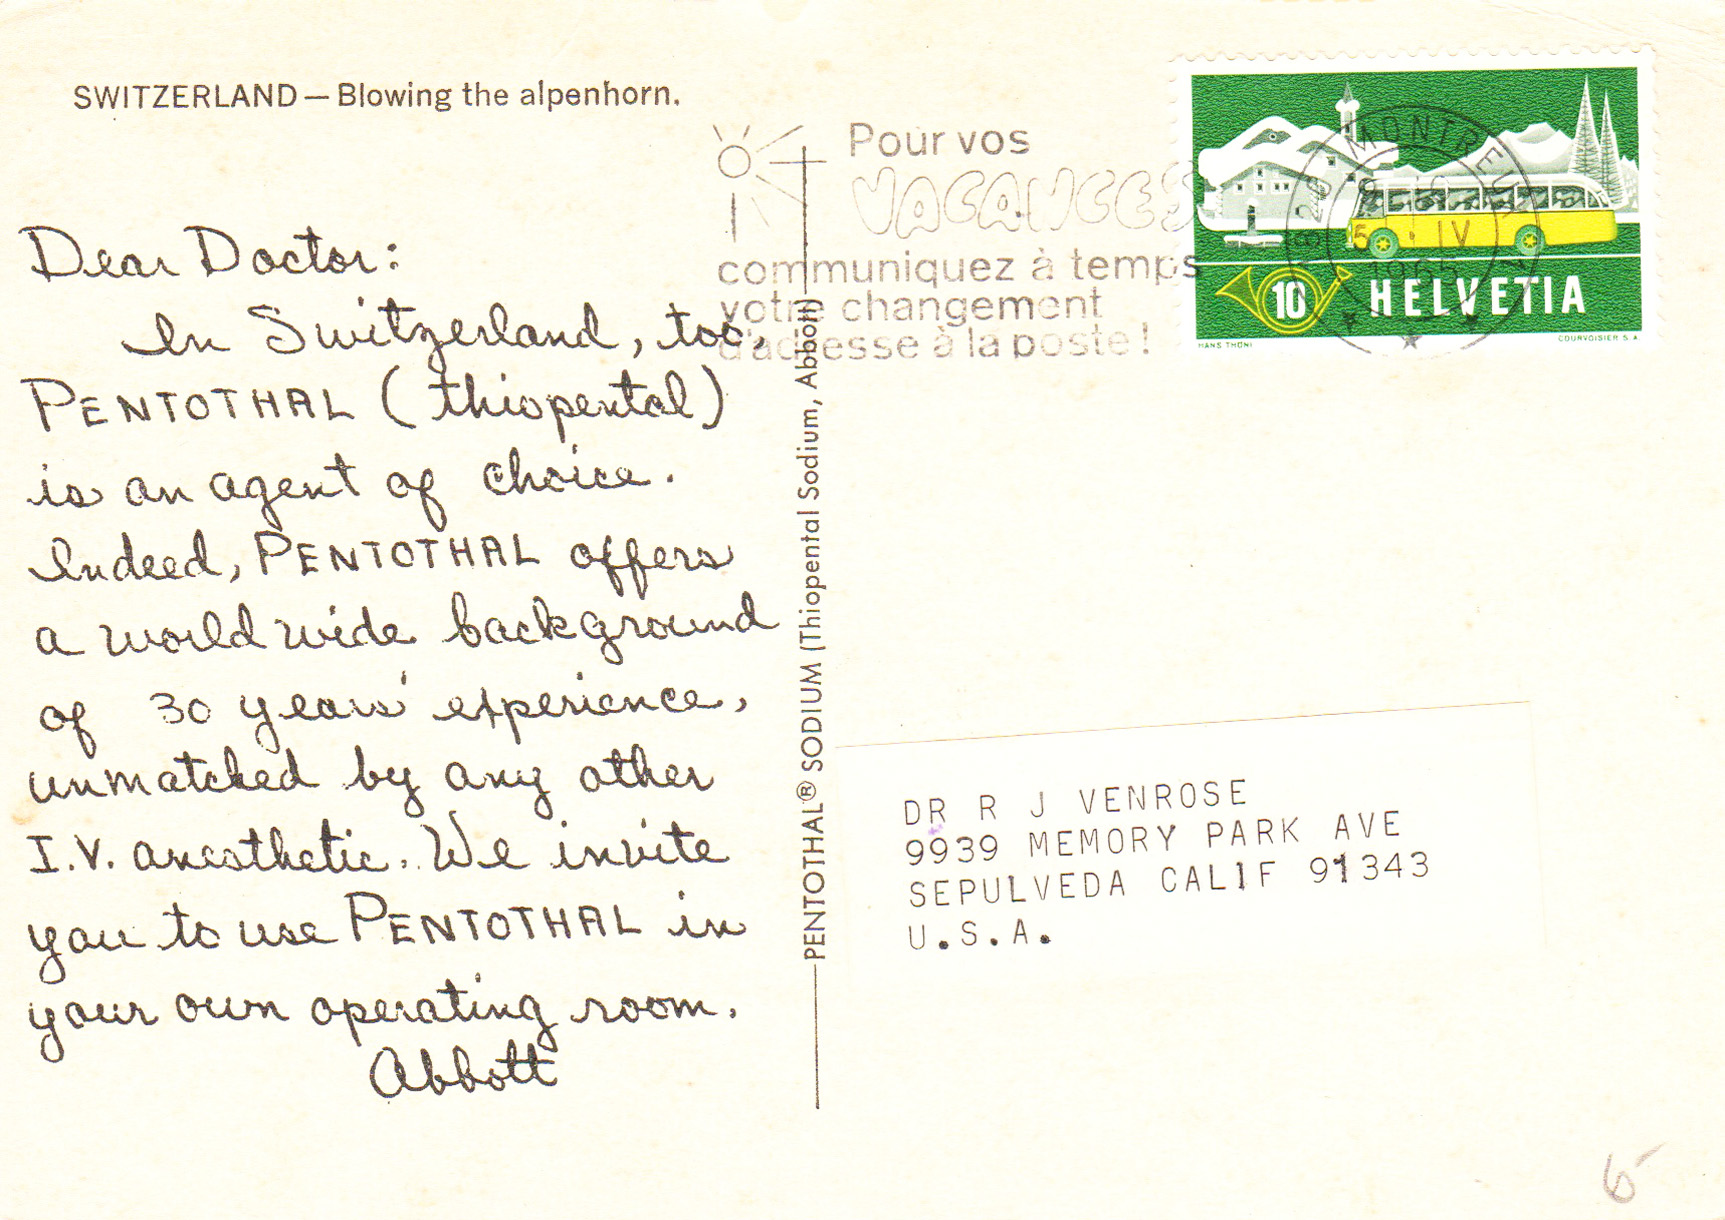 SWITZERLAND — Blowing the alpenhorn.
Dear Doctor:
In Switzerland, too,
PENTOTHAL (thiopental)
is an agent of choice.
Indeed, PENTOTHAL offers
a world wide background
of 30 years' experience,
unmatched by any other
I.V. anesthetic. We invite
you to use PENTOTHAL in
your own operating room.
Abbott
PENTOTHAL® SODIUM (Thiopental Sodium, Abbott)
Pour vos
VACANCES
communiquez à temps
votre changement
d'adresse à la poste!
MONTREUX
IV
1965
10 HELVETIA
HANS THÖNI
COURVOISIER S.A.
DR R J VENROSE
9939 MEMORY PARK AVE
SEPULVEDA CALIF 91343
U.S.A.
6-